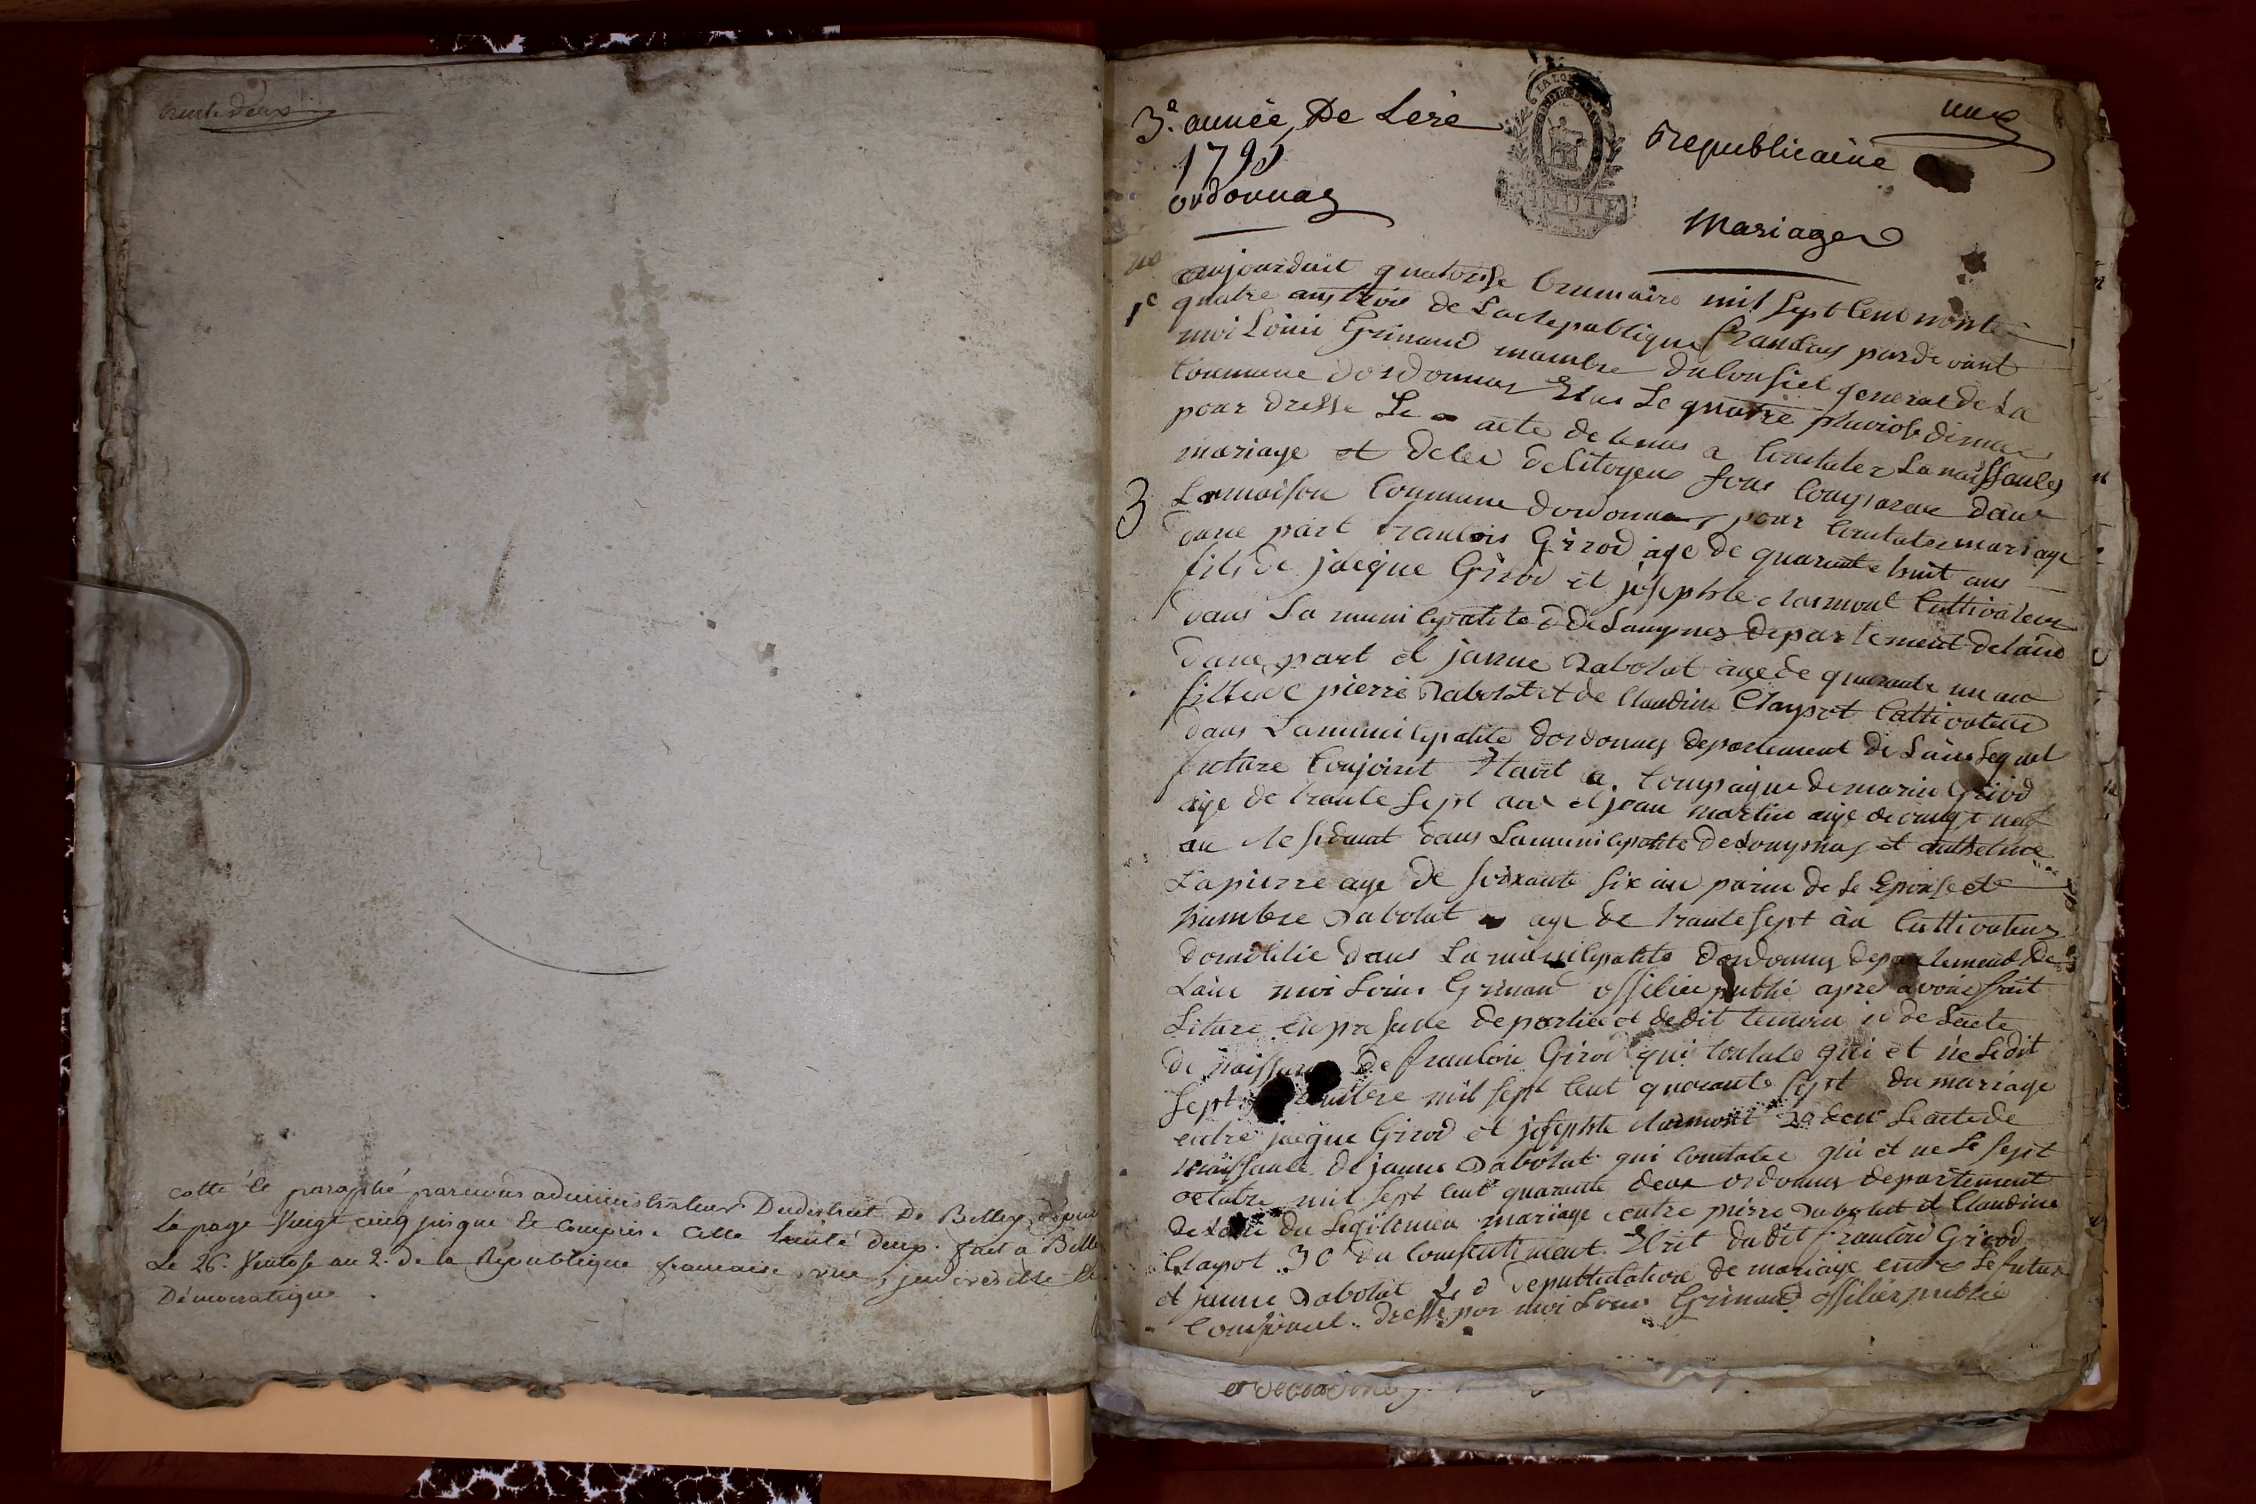 trente deux
cotté et paraphé par nous administrateur Du district De Belley depuis
La page Vingt cinq jusque et compris Cette trente deux. fait a Belley
Le 26e Ventose an 2e de la République francaise, une, indivisible et
Démocratique
3e année, De Lere republicaine
une
1795
ordonnas
Mariages
1e
aujourduit quatorse brumaire mil sept Cent nonte
quatre ans trois de La republique francais pardevant
moi Louis Grinand mambre du Consiel general de La
Commune dordonnas Elus Le quatre pluviose dernier
pour dresse Le acte de tenus a Constater La naissances
mariage et deces de Citoyens sons Comparus dans
3
La maison Commune dordonnas pour Constater mariage
dune part francois Girod age de quarante huit ans
fils de jacque Girod et josephte Clarmont Cultivateur
dans La municipalite de Lompnas departement de lain
dune part et janne Rabolat age de quarante un ans
fille de pierre Rabolat et de Claudine Claypot Cultivateur
dans La municipalite dordonnas departement de Lain Lequel
future Conjoint Etant a Compagne de marin Girod
age de trante sept ans et jean martin age de vingt neuf
an Residant dans La municipalite de Lompnas et anthelme
Lapierre age de soixante six an de Le Epouse et
humbre Rabolat age de trante sept an Cultivateur
domicilie dans La municipalite dordonnas departement de
Lain moi Louis Grinand officier public apres avoir fait
Licture en presance de partie et dedit temoin de Lacte
de naissance de francois Girod qui Constate qui et ne Ledit
sept mil sept Cent quarante sept du mariage
entre jacque Girod et josephte Clarmont Le acte de
naissance de janne Rabolat qui Constate qui et ne Le sept
octobre mil sept Cent quarante deux ordonnas departement
de Lain du Legitimen mariage entre pierre Rabolat et Claudine
Claypot 3e du Consentement Ecrit dudit francois Girod
et janne Rabolat de publication de mariage entre Le futur
Conjoint dresse par moi Louis Grinand officier public